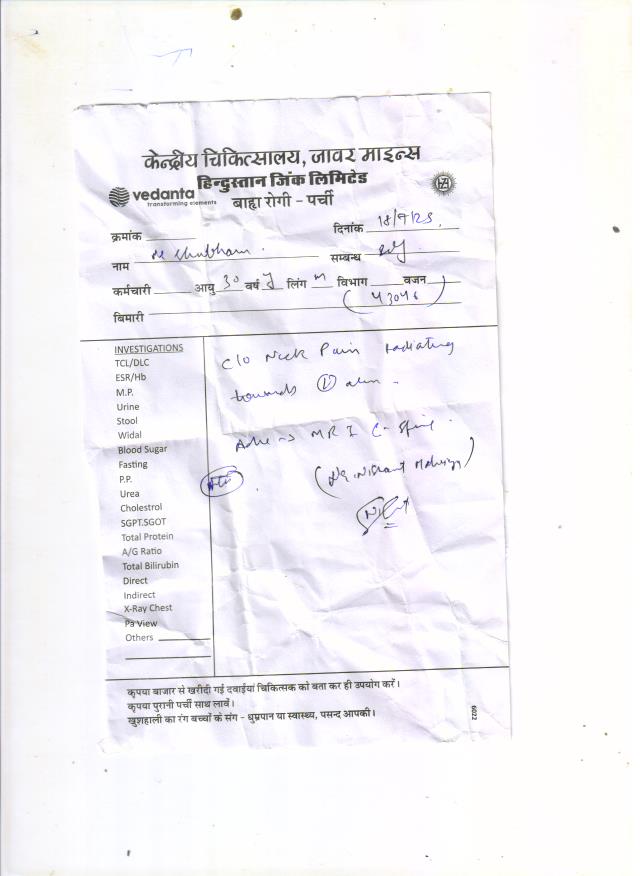 केन्द्रीय चिकित्सालय, जावर माइन्स
हिन्दुस्तान जिंक लिमिटेड
vedanta
transforming elements
बाह्य रोगी - पर्ची
क्रमांक दिनांक 18/9/25
नाम Mr Shubham सम्बन्ध
कर्मचारी आयु 30 वर्ष y लिंग m विभाग वजन
बिमारी (43046)
INVESTIGATIONS
TCL/DLC
ESR/Hb
M.P.
Urine
Stool
Widal
Blood Sugar
Fasting
P.P.
Urea
Cholestrol
SGPT.SGOT
Total Protein
A/G Ratio
Total Bilirubin
Direct
Indirect
X-Ray Chest
Pa View
Others
C/O Neck Pain radiating
towards arm
Adv → MRI C-Spine
(Dr. Nishant
कृपया बाजार से खरीदी गई दवाईयां चिकित्सक को बता कर ही उपयोग करें।
कृपया पुरानी पर्ची साथ लावें।
खुशहाली का रंग बच्चों के संग - धुम्रपान या स्वास्थ्य, पसन्द आपकी।
6022